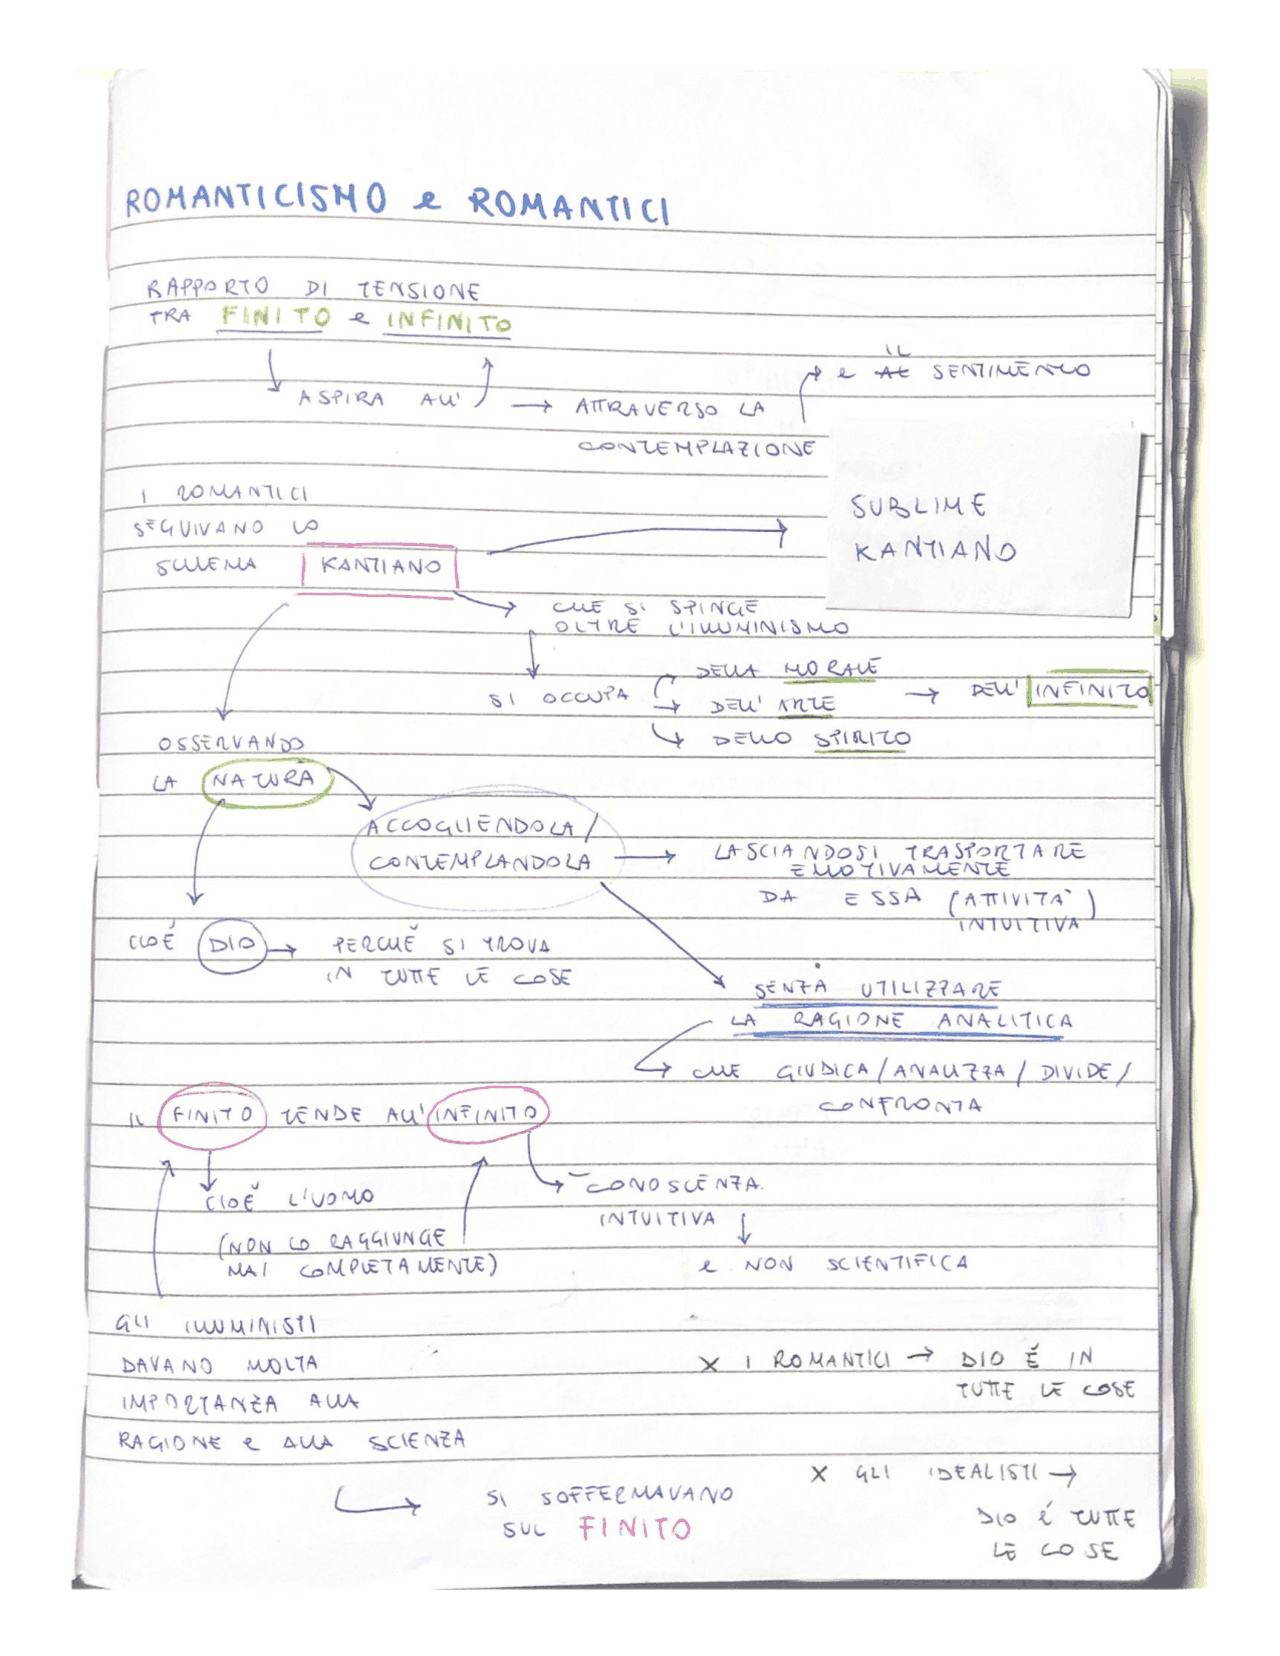 ROMANTICISMO e ROMANTICI
RAPPORTO DI TENSIONE
TRA FINITO e INFINITO
ASPIRA ALL'
→ ATTRAVERSO LA
CONTEMPLAZIONE
IL
e AL SENTIMENTO
I ROMANTICI
SEGUIVANO LO
SCHEMA KANTIANO
SUBLIME
KANTIANO
CHE SI SPINGE
OLTRE L'ILLUMINISMO
SI OCCUPA
DELLA MORALE
→ DELL' ARTE
DELLO SPIRITO
→ DELL' INFINITO
OSSERVANDO
LA NATURA
ACCOGLIENDOLA/
CONTEMPLANDOLA
→ LASCIANDOSI TRASPORTARE
EMOTIVAMENTE
DA ESSA (ATTIVITÀ
INTUITIVA)
CIOÈ DIO → PERCHÈ SI TROVA
IN TUTTE LE COSE
SENZA UTILIZZARE
LA RAGIONE ANALITICA
CHE GIUDICA/ANALIZZA/DIVIDE/
CONFRONTA
IL FINITO TENDE ALL'INFINITO
CIOÈ L'UOMO
(NON LO RAGGIUNGE
MAI COMPLETAMENTE)
CONOSCENZA
INTUITIVA
e NON SCIENTIFICA
GLI ILLUMINISTI
DAVANO MOLTA
IMPORTANZA ALLA
RAGIONE e ALLA SCIENZA
SI SOFFERMAVANO
SUL FINITO
X I ROMANTICI → DIO È IN
TUTTE LE COSE
X GLI IDEALISTI →
DIO É TUTTE
LE COSE